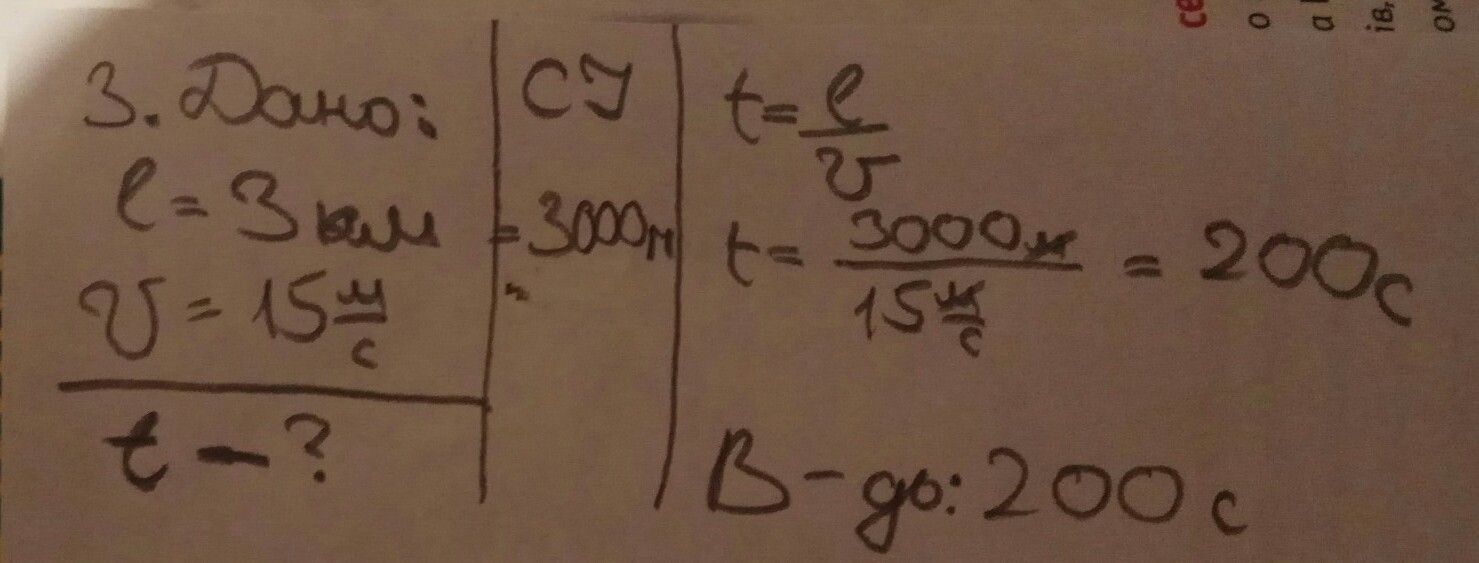 3. Дано:
l = 3 км
v = 15 м/с
t - ?
СІ
= 3000м
t = l/v
t = 3000м / 15 м/с = 200с
В-дь: 200 с
се
о
а
ів,